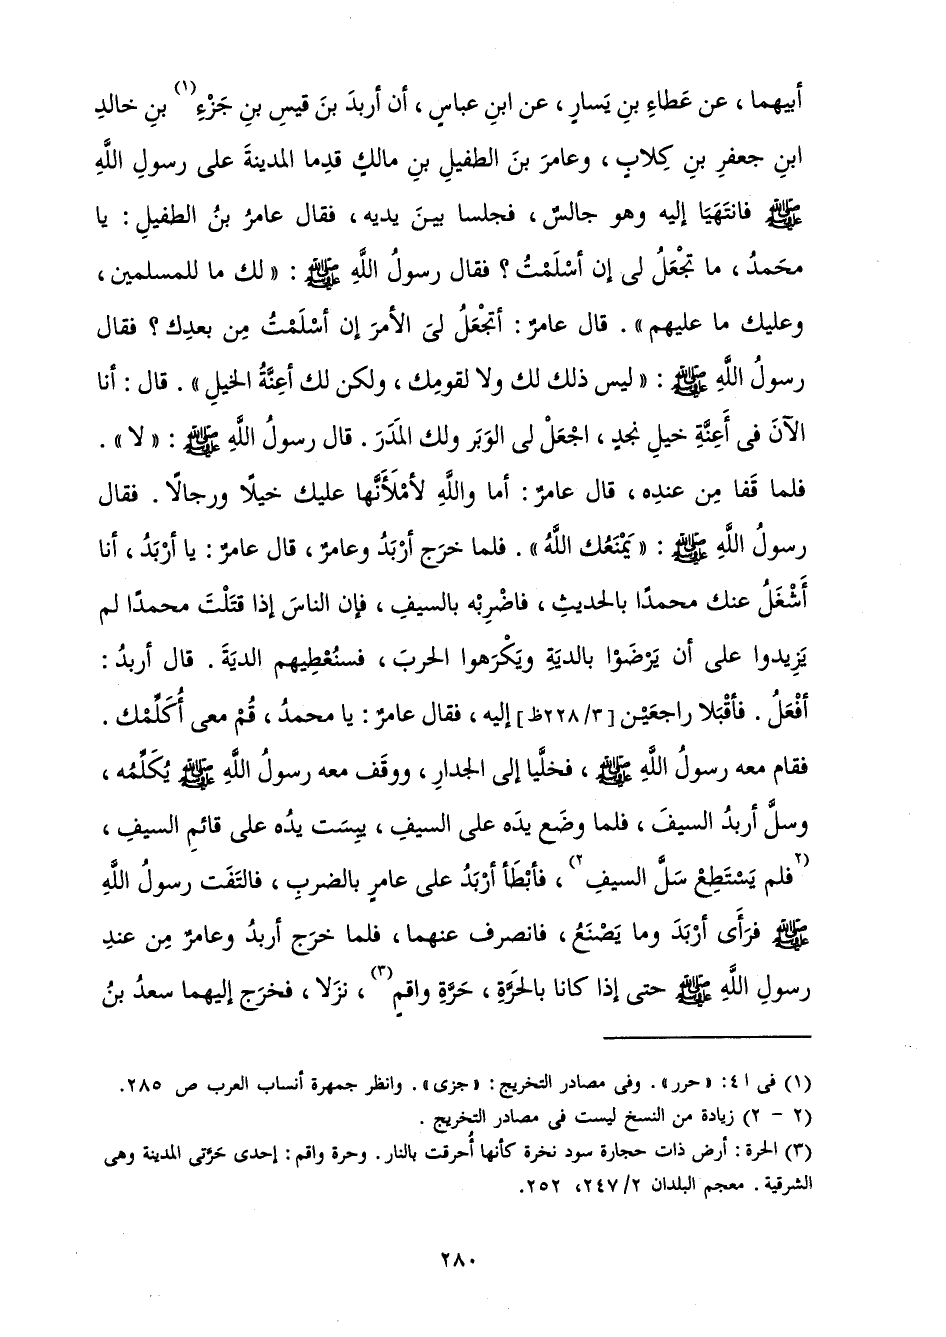 أبيهما ، عن عَطاءِ بنِ يَسارٍ ، عن ابنِ عباسٍ ، أن أربدَ بنَ قيسِ بنِ جَزْءِ(١) بنِ خالدِ
ابنِ جعفرِ بنِ كِلابٍ ، وعامرَ بنَ الطفيلِ بنِ مالكٍ قدِما المدينةَ على رسولِ اللَّهِ
ﷺ فانتَهَيَا إليه وهو جالسٌ ، فجلسا بينَ يديه ، فقال عامرُ بنُ الطفيلِ : يا
محَمدُ ، ما تَجْعَلُ لى إن أسْلَمْتُ ؟ فقال رسولُ اللَّهِ ﷺ : « لك ما للمسلمين ،
وعليك ما عليهم » . قال عامرٌ : أتَجْعَلُ لىَ الأمرَ إن أسْلَمْتُ مِن بعدِك ؟ فقال
رسولُ اللَّهِ ﷺ : « ليس ذلك لك ولا لقومِك ، ولكن لك أعِنَّةُ الخيلِ » . قال : أنا
الآنَ فى أَعِنَّةِ خيلِ نجدٍ ، اجْعَلْ لى الوَبَر ولك المَدَرَ . قال رسولُ اللَّهِ ﷺ : « لا » .
فلما قَفا مِن عندِه ، قال عامرٌ : أما واللَّهِ لأمْلَأَنَّها عليك خيلًا ورجالًا . فقال
رسولُ اللَّهِ ﷺ : « يَمْنَعُك اللَّهُ » . فلما خرَج أرْبَدُ وعامرٌ ، قال عامرٌ : يا أرْبَدُ ، أنا
أَشْغَلُ عنك محمدًا بالحديثِ ، فاضْرِبْه بالسيفِ ، فإن الناسَ إذا قتَلْتَ محمدًا لم
يَزِيدوا على أن يَرْضَوْا بالديَةِ ويَكْرَهوا الحربَ ، فسنُعْطِيهم الديَةَ . قال أربدُ :
أفْعَلُ . فأقْبَلا راجعَيْن [٣/٢٢٨ظ] إليه ، فقال عامرٌ : يا محمدُ ، قُمْ معى أُكَلِّمْك .
فقام معه رسولُ اللَّهِ ﷺ ، فخلَّيا إلى الجدارِ ، ووقَف معه رسولُ اللَّهِ ﷺ يُكَلِّمُه ،
وسلَّ أربدُ السيفَ ، فلما وضَع يدَه على السيفِ ، يبِسَت يدُه على قائمِ السيفِ ،
(٢فلم يَسْتَطِعْ سَلَّ السيفِ٢) ، فأبْطَأ أرْبَدُ على عامرٍ بالضربِ ، فالتَفَت رسولُ اللَّهِ
ﷺ فرَأَى أرْبَدَ وما يَصْنَعُ ، فانصرف عنهما ، فلما خرَج أربدُ وعامرٌ مِن عندِ
رسولِ اللَّهِ ﷺ حتى إذا كانا بالحَرَّةِ ، حَرَّةِ واقمٍ(٣) ، نزَلا ، فخرَج إليهما سعدُ بنُ
(١) فى ا ٤: « حرر » . وفى مصادر التخريج : « جزى » . وانظر جمهرة أنساب العرب ص ٢٨٥.
(٢ - ٢) زيادة من النسخ ليست فى مصادر التخريج .
(٣) الحرة : أرض ذات حجارة سود نخرة كأنها أُحرقت بالنار . وحرة واقم : إحدى حَرَّتى المدينة وهى
الشرقية . معجم البلدان ٢/ ٢٤٧، ٢٥٢.
٢٨٠